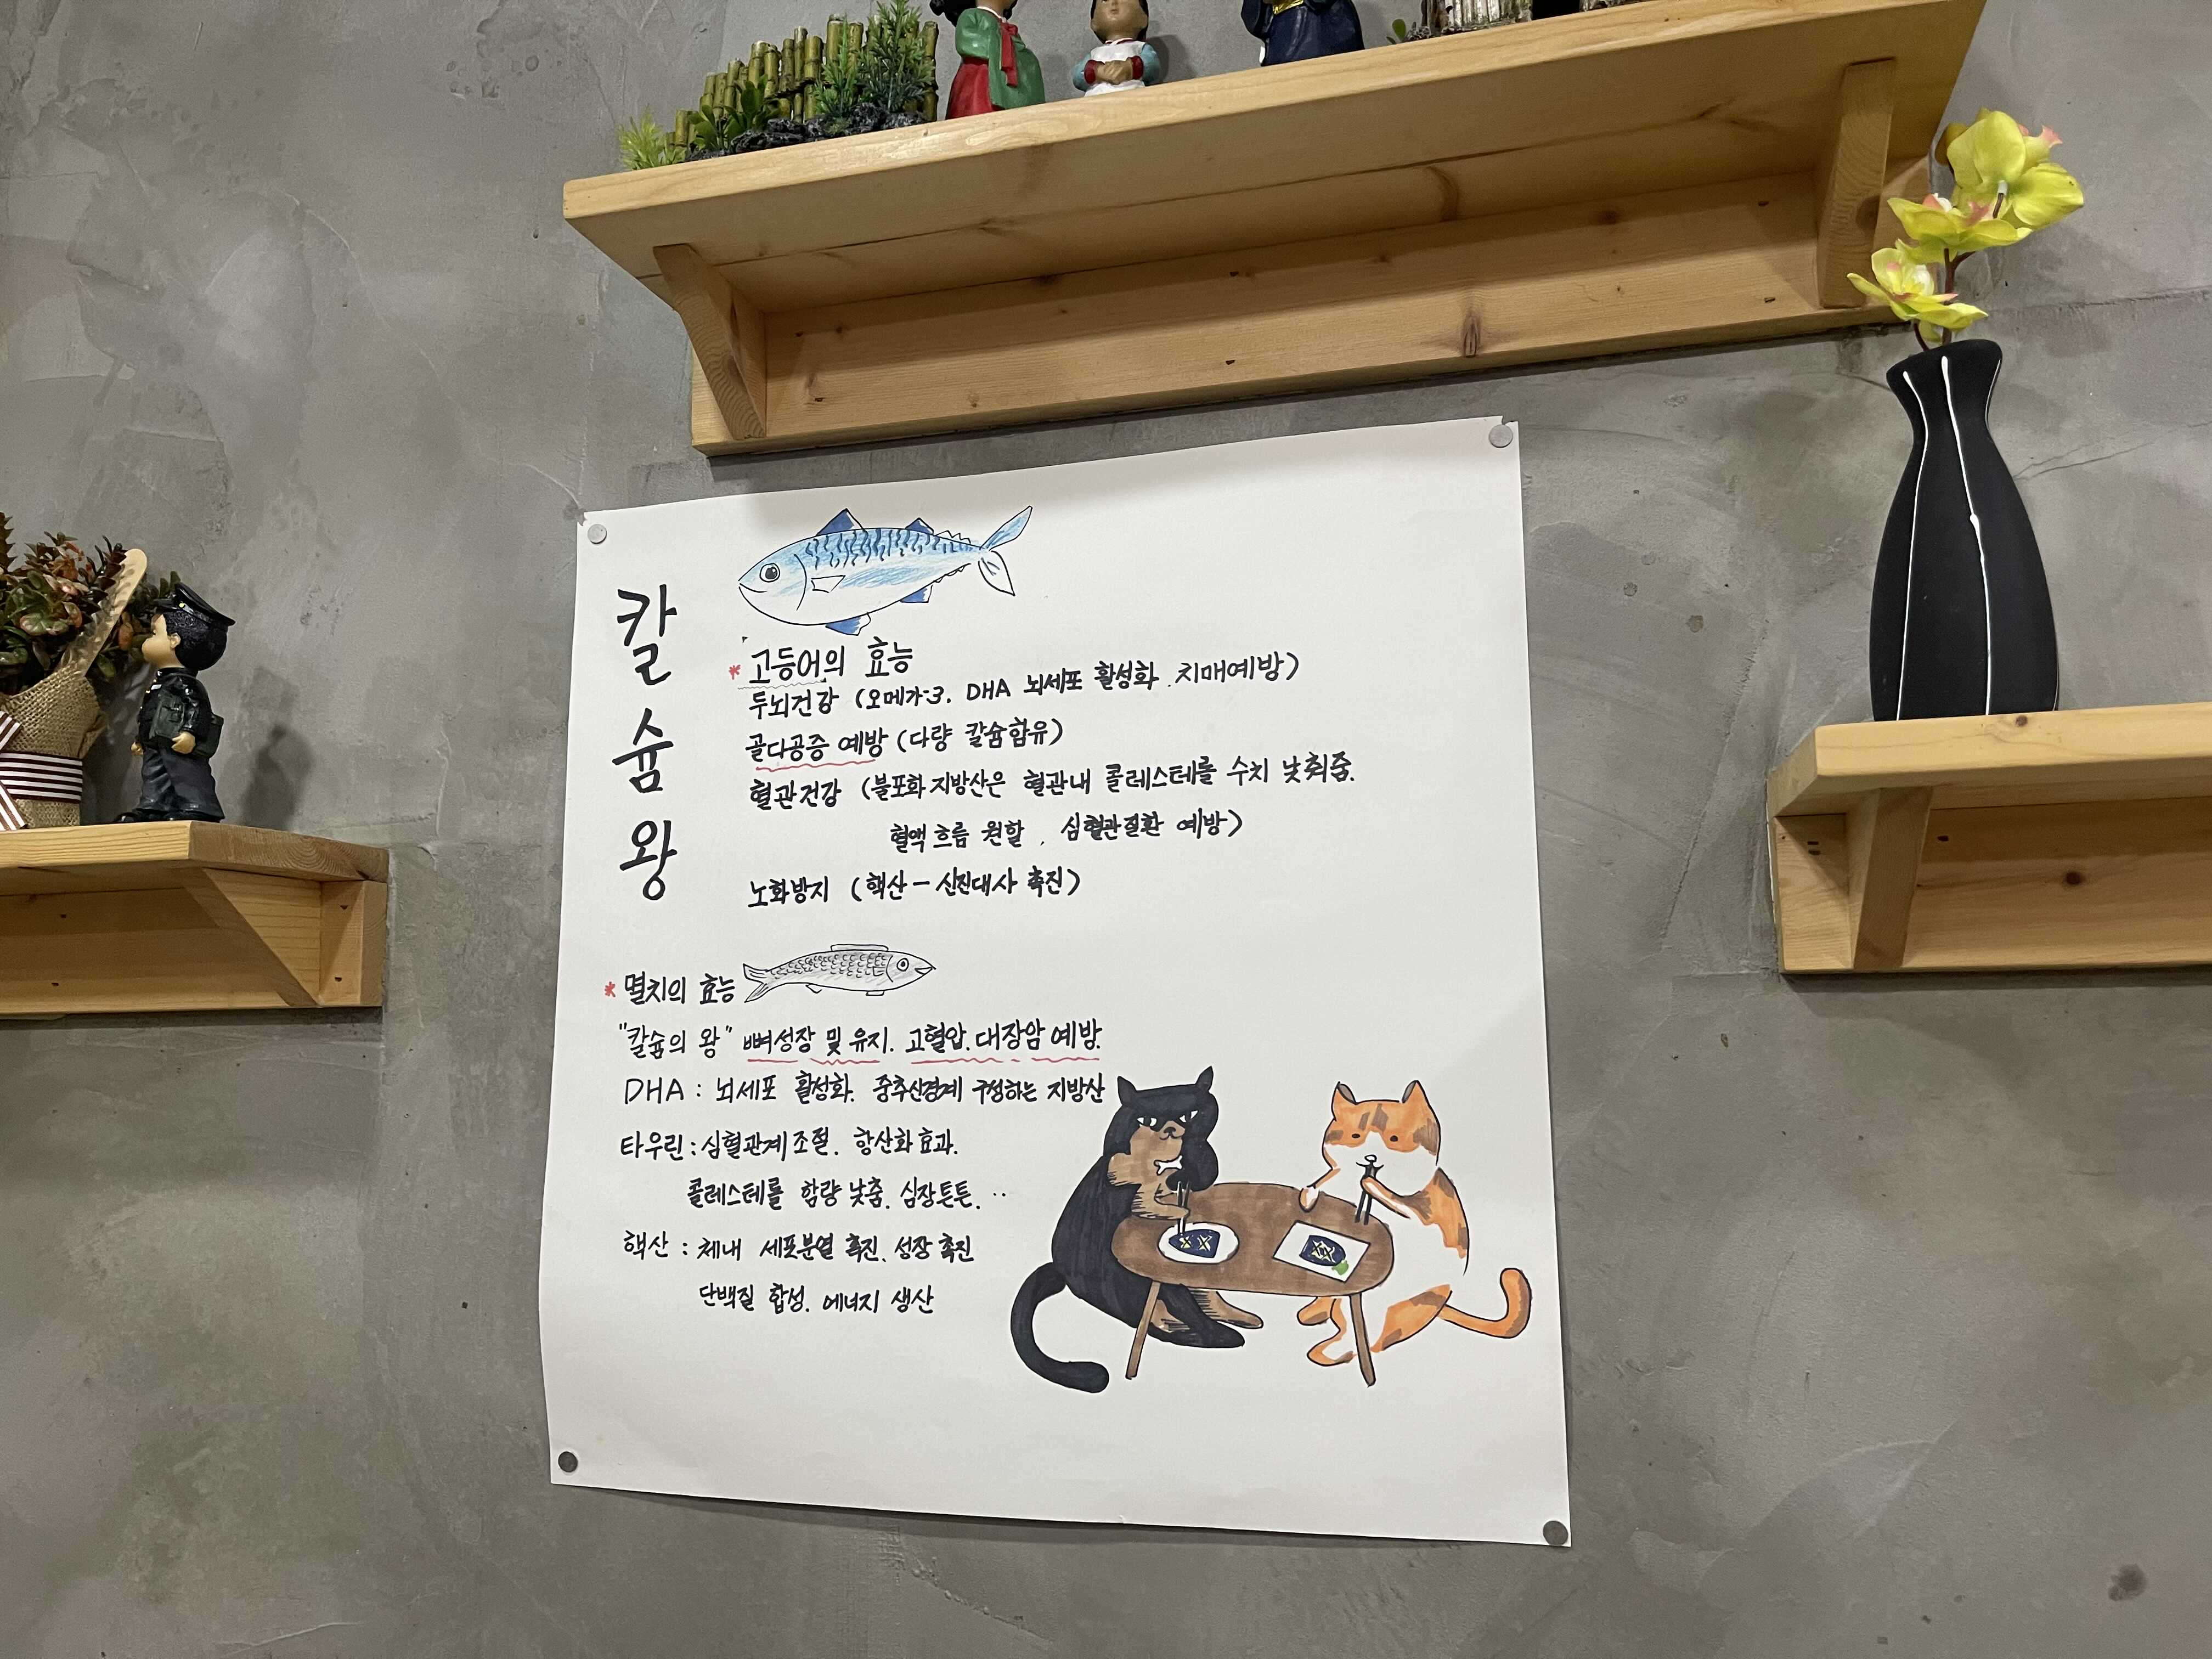 칼슘왕
* 고등어의 효능
두뇌건강 (오메가-3. DHA 뇌세포 활성화. 치매예방)
골다공증 예방 (다량 칼슘함유)
혈관건강 (불포화지방산은 혈관내 콜레스테롤 수치 낮춰줌.
혈액흐름 원할, 심혈관질환 예방)
노화방지 (핵산-신진대사 촉진)
* 멸치의 효능
"칼슘의 왕" 뼈성장 및 유지. 고혈압. 대장암 예방.
DHA : 뇌세포 활성화. 중추신경계 구성하는 지방산
타우린 : 심혈관계조절. 항산화효과.
콜레스테롤 함량 낮춤. 심장튼튼. ..
핵산 : 체내 세포분열 촉진. 성장 촉진
단백질 합성. 에너지 생산